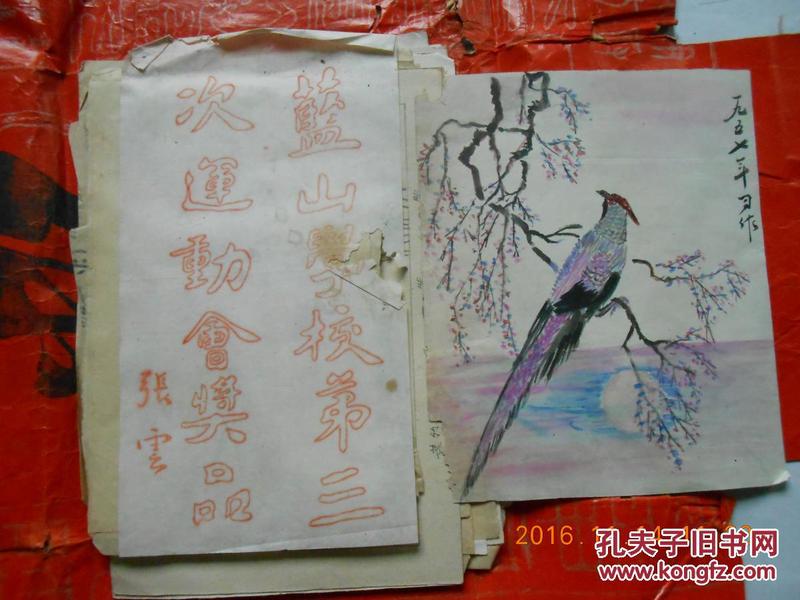 藍山學校第三
次運動會獎品
張雲
一九五七年习作
2016.1
孔夫子旧书网
www.kongfz.com